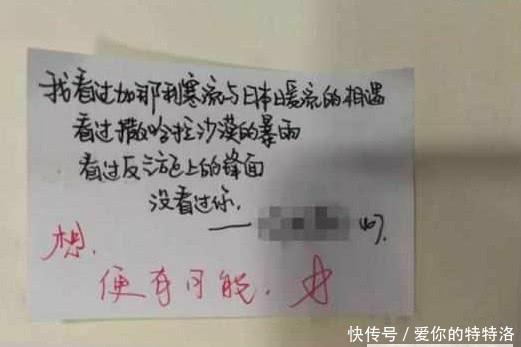 我看过加耶利寒流与日本暖流的相遇
看过撒哈拉沙漠的暴雨
看过反气旋上的锋面
没看过你.
——
想.
便有可能.
快传号/爱你的特特洛